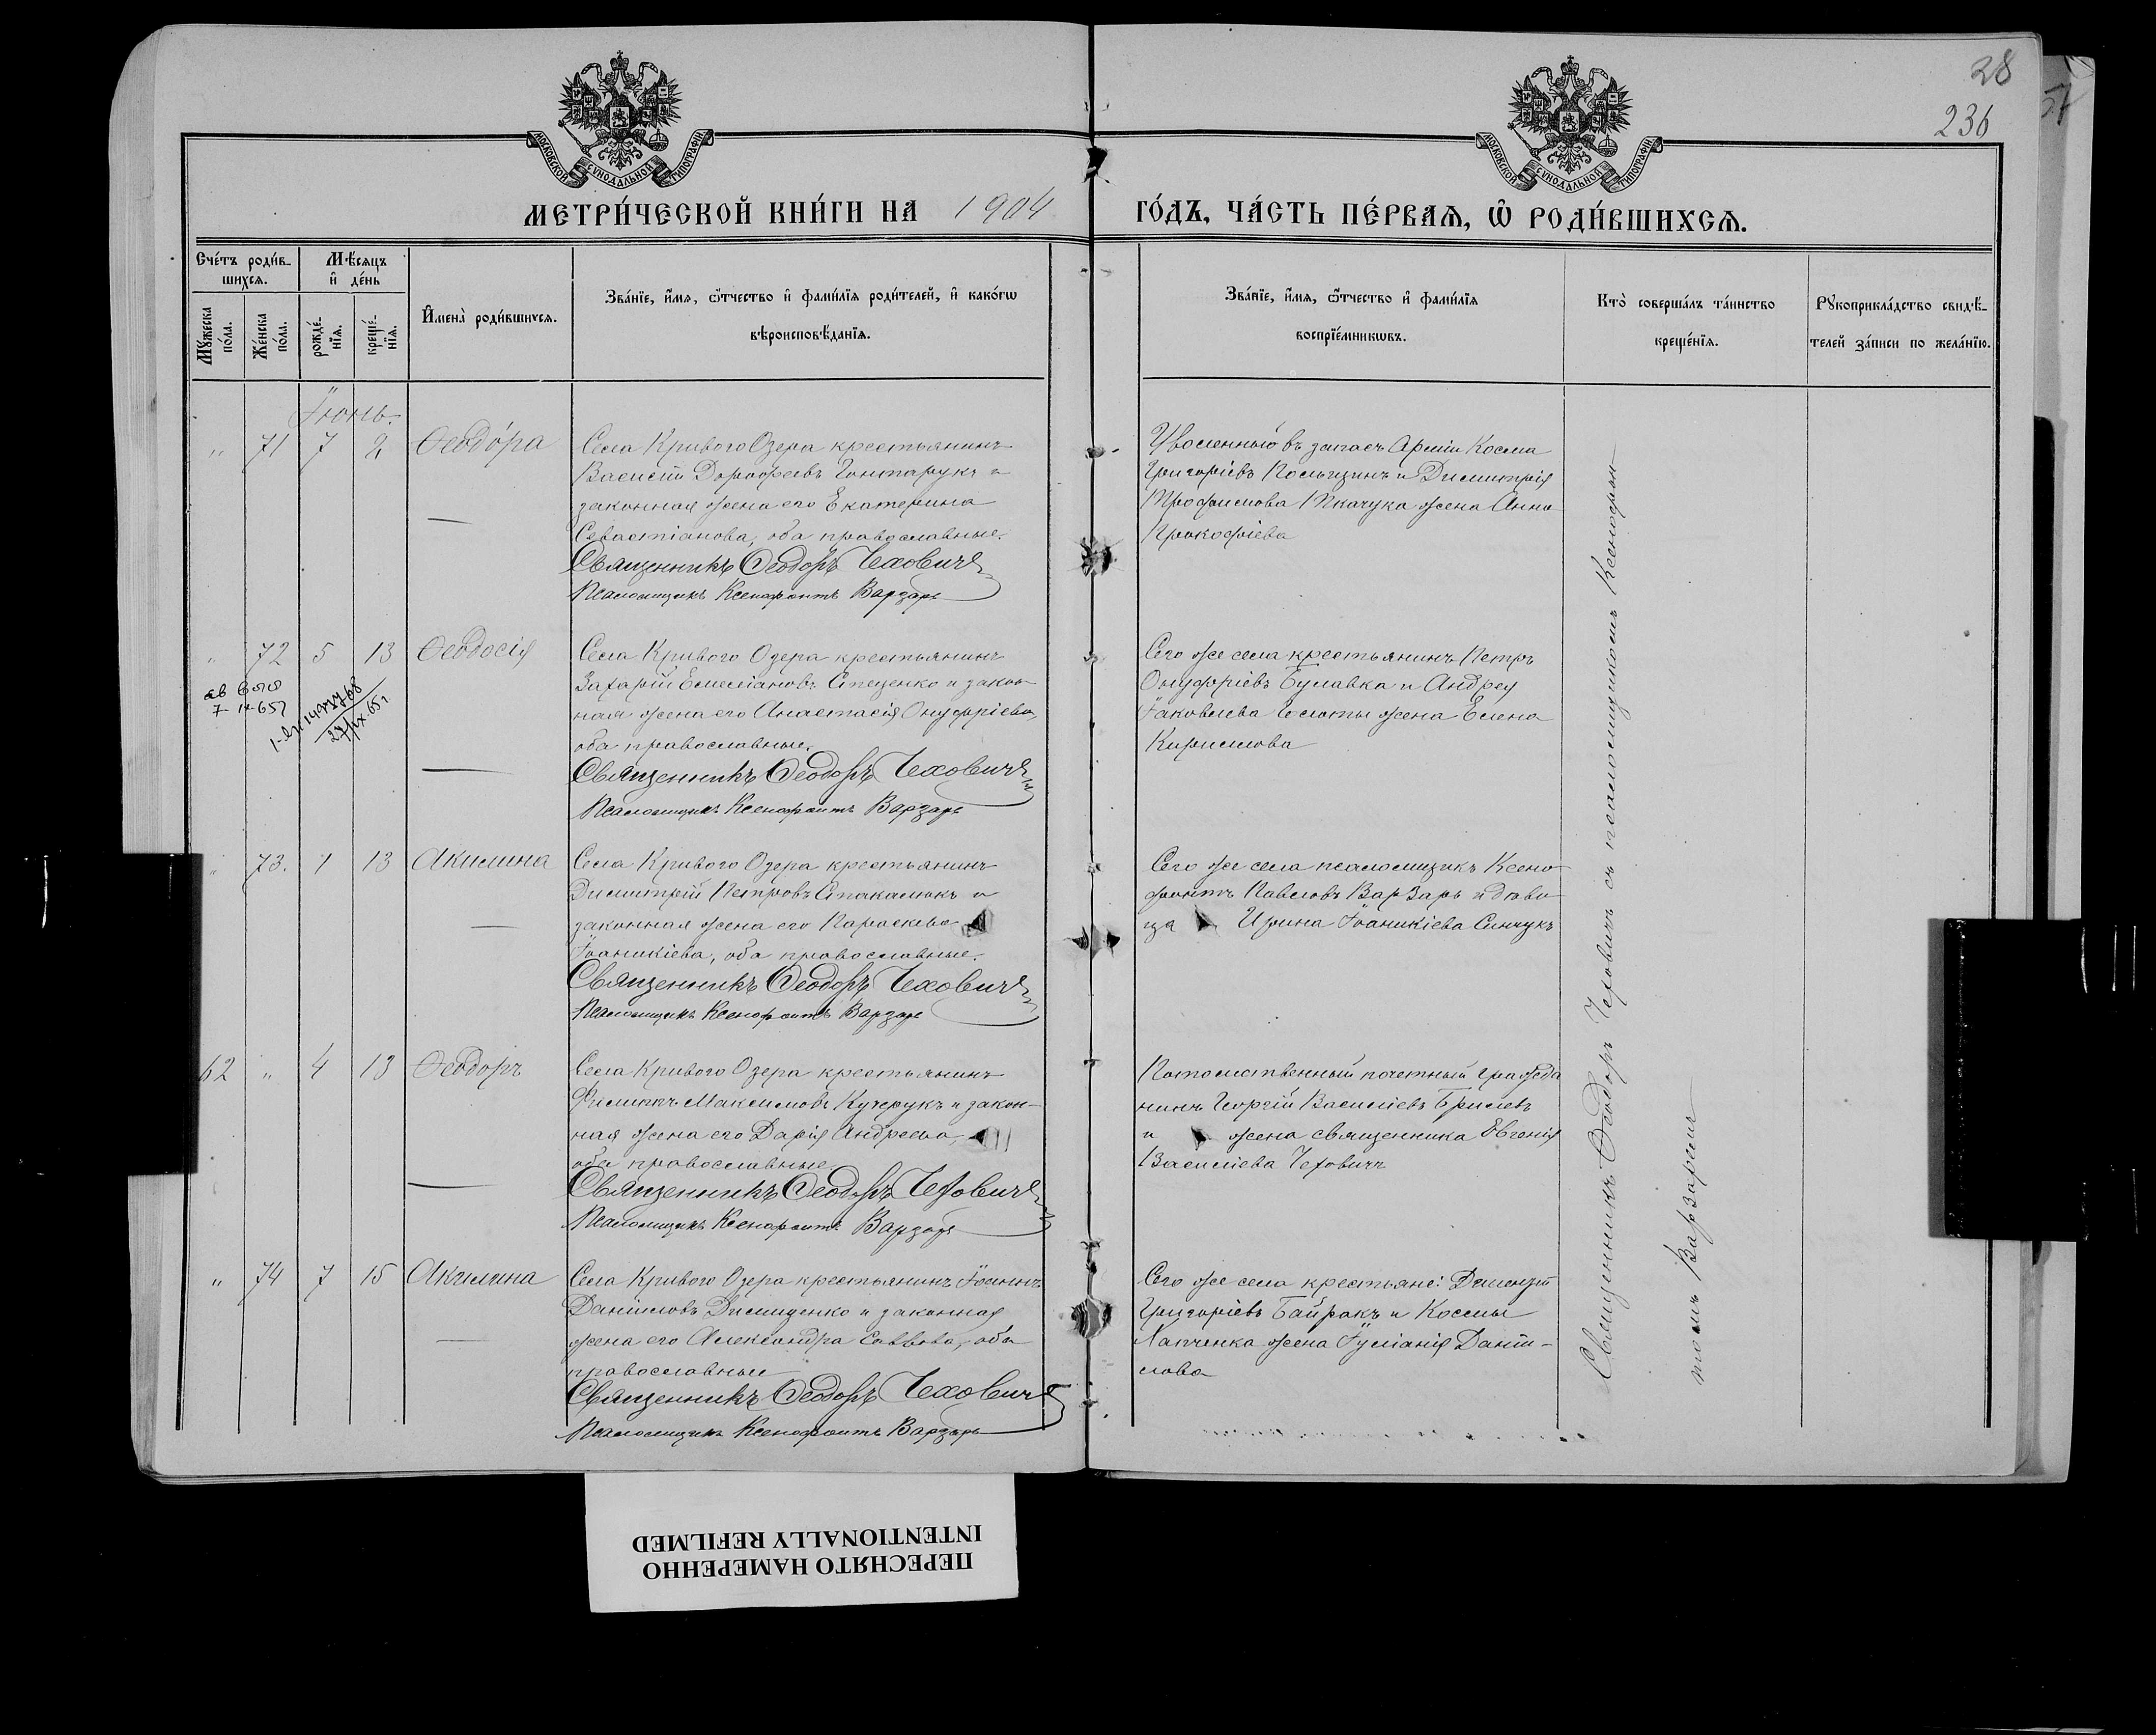 28
236
МОСКОВСКОЙ СѴНОДАЛЬНОЙ ТИПОГРАФІИ
МОСКОВСКОЙ СѴНОДАЛЬНОЙ ТИПОГРАФІИ
МЕТРИ́ЧЕСКОЙ КНИ́ГИ НА 1904
ГО́ДЪ, ЧА́СТЬ ПЕ́РВАѦ, Ѽ РОДИ́ВШИХСѦ.
Сче́тъ роди́в-
шихсѧ.
Мѣ́сѧцъ
и҆ де́нь
Мꙋ́жеска
по́ла.
Же́нска
по́ла.
рожде́-
нїѧ.
креще́-
нїѧ.
И҆мена̀ роди́вшихсѧ.
Зва́нїе, и҆́мѧ, ѻ҆́тчество и҆ фами́лїѧ роди́телей, и҆ како́гѡ
вѣроисповѣ́данїѧ.
Зва́нїе, и҆́мѧ, ѻ҆́тчество и҆ фами́лїѧ
воспрїе́мникѡвъ.
Кто̀ соверша́лъ та́инство
креще́нїѧ.
Рꙋкоприкла́дство свидѣ́-
телей за́писи по жела́нїю.
Іюнь.
" 71 7 2 Ѳеодо́ра
Села Кривого Озера крестьянинъ
Василій Дороѳеевъ Гонтарукъ и
законная жена его Екатерина
Севастіанова, оба православные.
Священникъ Ѳеодоръ Чеховичъ
Псаломщикъ Ксенофонтъ Варзарь
Уволенный въ запасъ Арміи Косма
Григоріевъ и Димитрія
Трофимова Ткачука жена Анна
Прокофіева
" 72 5 13 Ѳеодосія
Села Кривого Озера крестьянинъ
Захарій Емеліановъ Стеценко и закон-
ная жена его Анастасія Онуфріева,
оба православные.
Священникъ Ѳеодоръ Чеховичъ
Псаломщикъ Ксенофонтъ Варзарь
Сего же села крестьянинъ Петръ
Онуфріевъ Булавка и Андрея
Іаковлева жена Елена
Кириллова
" 73. 7 13 Акилина
Села Кривого Озера крестьянинъ
Димитрій Петровъ Стакалюкъ и
законная жена его Параскева
Іоаникіева, оба православные.
Священникъ Ѳеодоръ Чеховичъ
Псаломщикъ Ксенофонтъ Варзарь
Сего же села псаломщикъ Ксено-
фонтъ Павловъ Варзарь и дѣви-
ца Ирина Іоаникіева Синчукъ
62 " 4 13 Ѳеодоръ
Села Кривого Озера крестьянинъ
Филиппъ Максимовъ Кучерукъ и закон-
ная жена его Дарія Андреева,
оба православные.
Священникъ Ѳеодоръ Чеховичъ
Псаломщикъ Ксенофонтъ Варзарь
Потомственный почетный гражда
нинъ Георгій Василіевъ Брилевъ
и жена священника Евгенія
Василіева Чеховичъ
" 74 7 15 Акилина
Села Кривого Озера крестьянинъ Іоаннъ
Даніиловъ Димиденко и законная
жена его Александра Саввова, оба
православные
Священникъ Ѳеодоръ Чеховичъ
Псаломщикъ Ксенофонтъ Варзарь
Сего же села крестьяне:
Григоріевъ Байракъ и Космы
Лапченка жена Іуліанія Даніи-
лова
Священникъ Ѳеодоръ Чеховичъ съ псаломщикомъ Ксенофон-
томъ Варзаремъ
ПЕРЕСНЯТО НАМЕРЕННО
INTENTIONALLY REFILMED